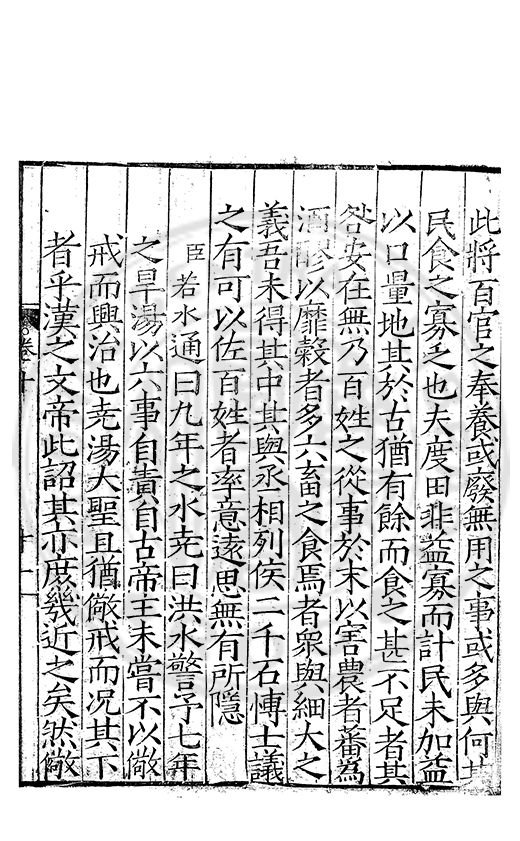 此將百官之奉養或廢無用之事或多與何其
民食之寡乏也夫度田非益寡而計民未加益
以口量地其於古猶有餘而食之甚不足者其
咎安在無乃百姓之從事於末以害農者蕃為
酒醪以靡穀者多六畜之食焉者眾與細大之
義吾未得其中其與丞相列侯二千石博士議
之有可以佐百姓者率意遠思無有所隱
臣若水通曰九年之水堯曰洪水警予七年
之旱湯以六事自責自古帝王未嘗不以儆
戒而興治也堯湯大聖且猶儆戒而況其下
者乎漢之文帝此詔其亦庶幾近之矣然儆
卷十
十二